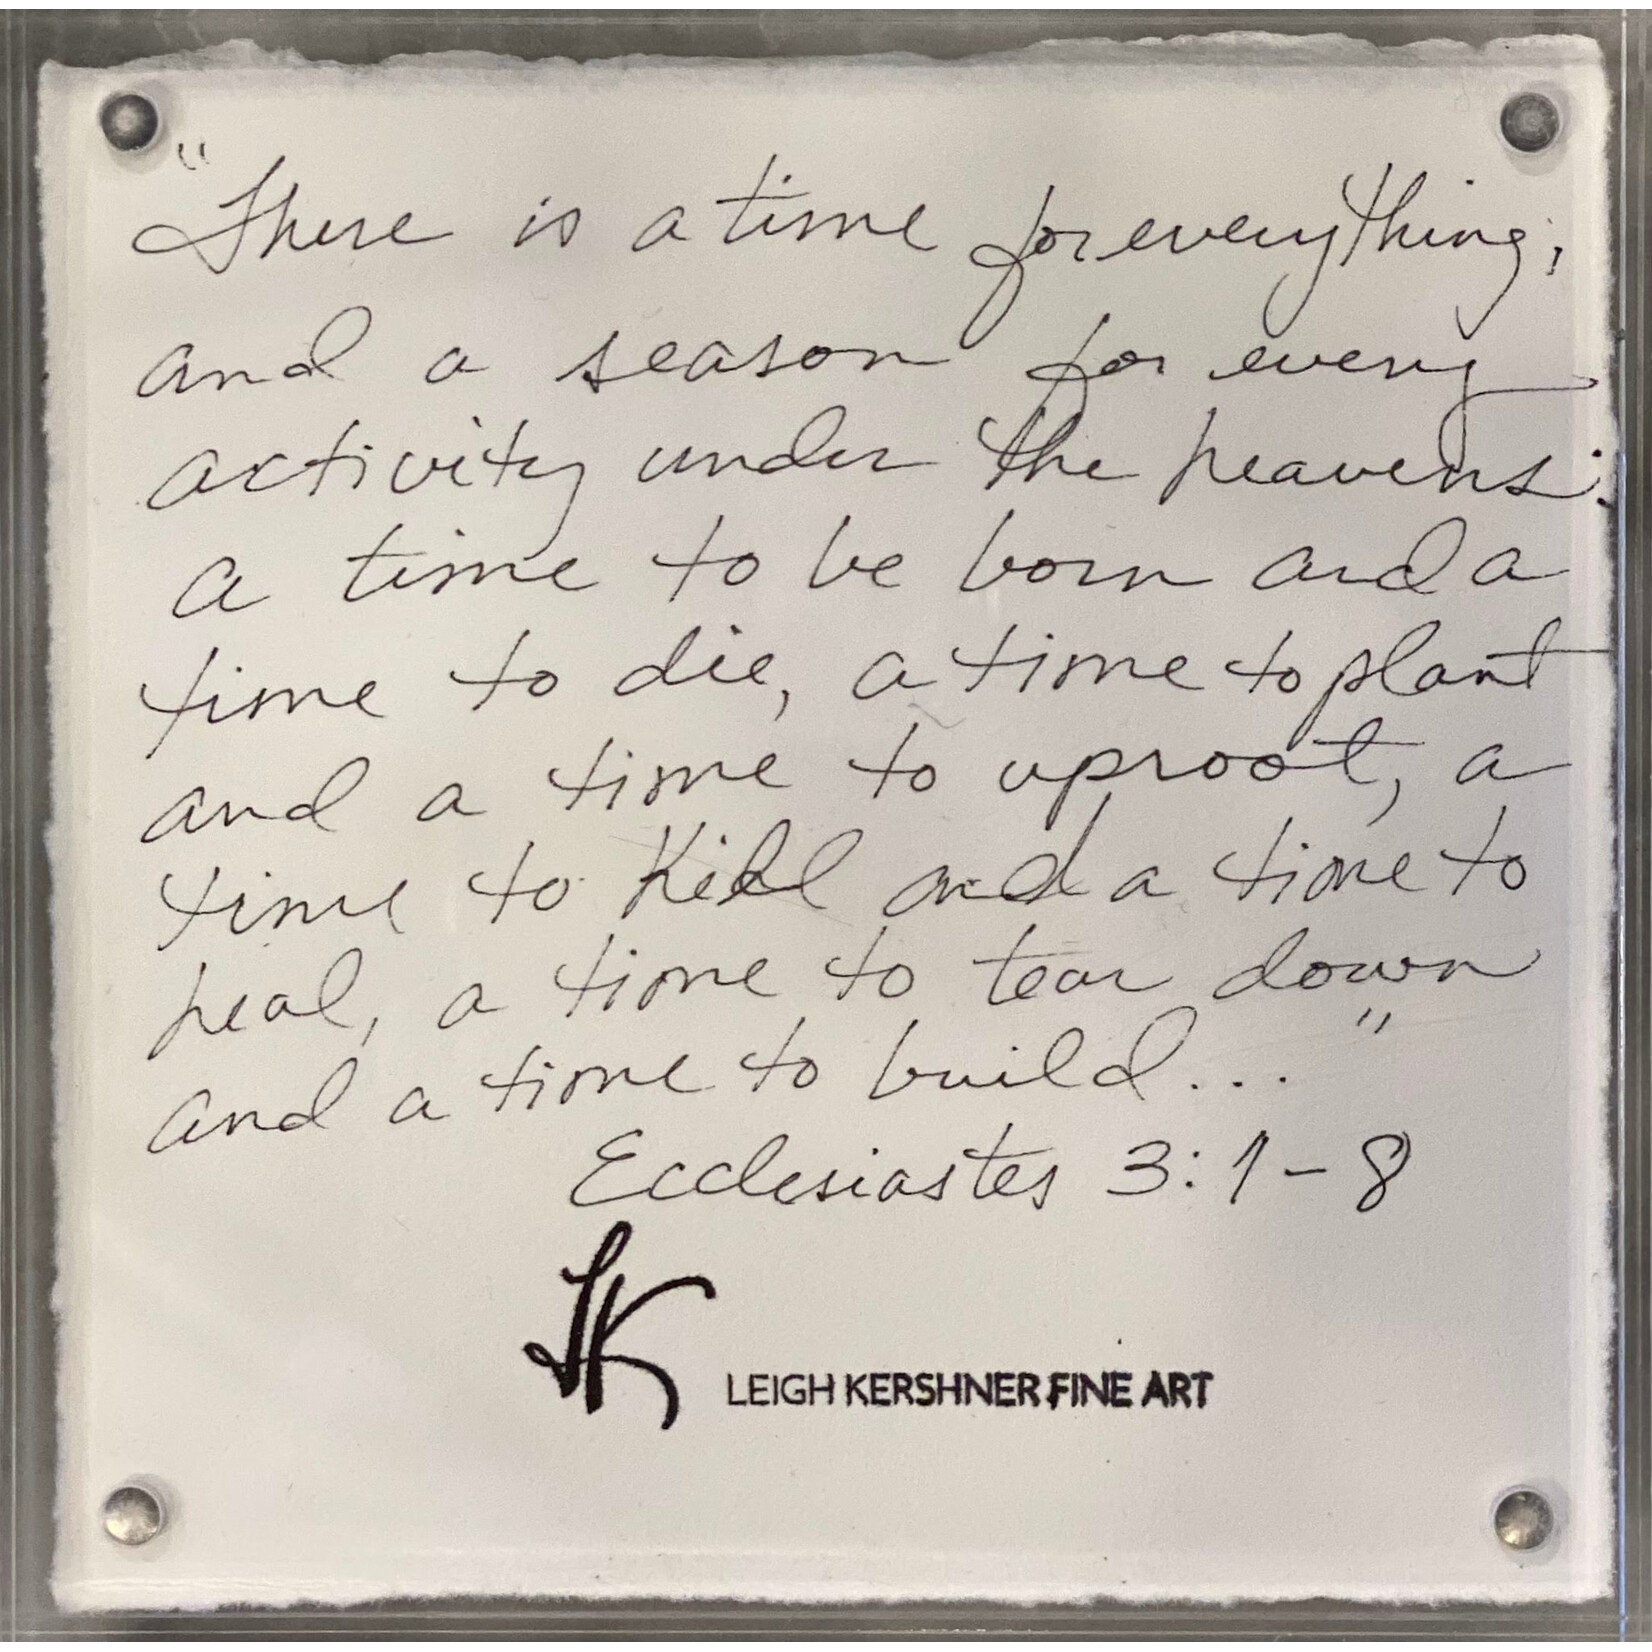 "There is a time for everything,
and a season for every
activity under the heavens:
a time to be born and a
time to die, a time to plant
and a time to uproot, a
time to Kill and a time to
heal, a time to tear down
and a time to build..."
Ecclesiastes 3:1-8
LK LEIGH KERSHNER FINE ART